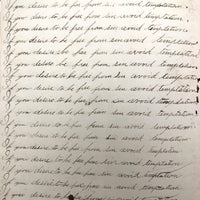 If you desire to be free from sin avoid temptation
If you desire to be free from sin avoid temptation
If you desire to be free from sin avoid temptation
If you desire to be free from sin avoid temptation
If you desire to be free from sin avoid temptation
If you desire to be free from sin avoid temptation
If you desire to be free from sin avoid temptation
If you desire to be free from sin avoid temptation
If you desire to be free from sin avoid temptation
If you desire to be free from sin avoid temptation
If you desire to be free from sin avoid temptation
If you desire to be free from sin avoid temptation
If you desire to be free from sin avoid temptation
If you desire to be free from sin avoid temptation
If you desire to be free from sin avoid temptation